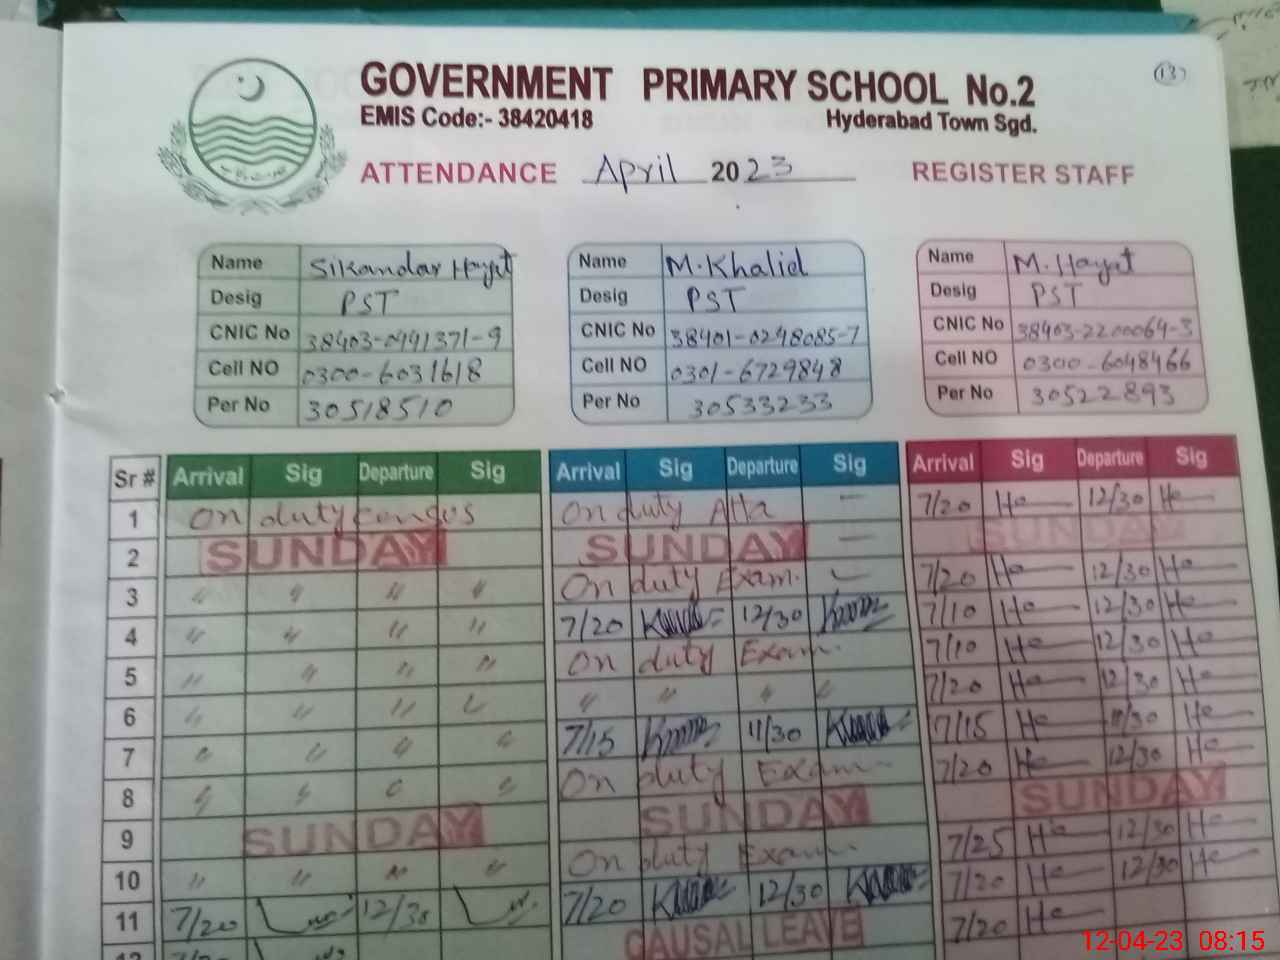 13
GOVERNMENT PRIMARY SCHOOL No.2
EMIS Code:- 38420418 Hyderabad Town Sgd.
ATTENDANCE April 2023 REGISTER STAFF
Name Sikandar Hayat Name M.Khalid Name M.Hayat
Desig PST Desig PST Desig PST
CNIC No 38403-0991371-9 CNIC No 38401-0248085-7 CNIC No 38403-2200064-3
Cell NO 0300-6031618 Cell NO 0301-6729848 Cell NO 0300-6048466
Per No 30518510 Per No 30533233 Per No 30522893
Sr # Arrival Sig Departure Sig Arrival Sig Departure Sig Arrival Sig Departure Sig
1 On duty Census On duty Atta 7/20 12/30
2 SUNDAY SUNDAY SUNDAY
3 " " " " On duty Exam. 7/20 12/30
4 " " " " 7/20 12/30 7/10 12/30
5 " " " " On duty Exam. 7/10 12/30
6 " " " " " " " " 7/20 12/30
7 " " " " 7/15 11/30 7/15 11/30
8 " " " " On duty Exam 7/20 12/30
9 SUNDAY SUNDAY SUNDAY
10 " " " " On duty Exam. 7/25 12/30
11 7/20 12/30 7/20 12/30 7/20 12/30
12 CAUSAL LEAVE 7/20
12-04-23 08:15